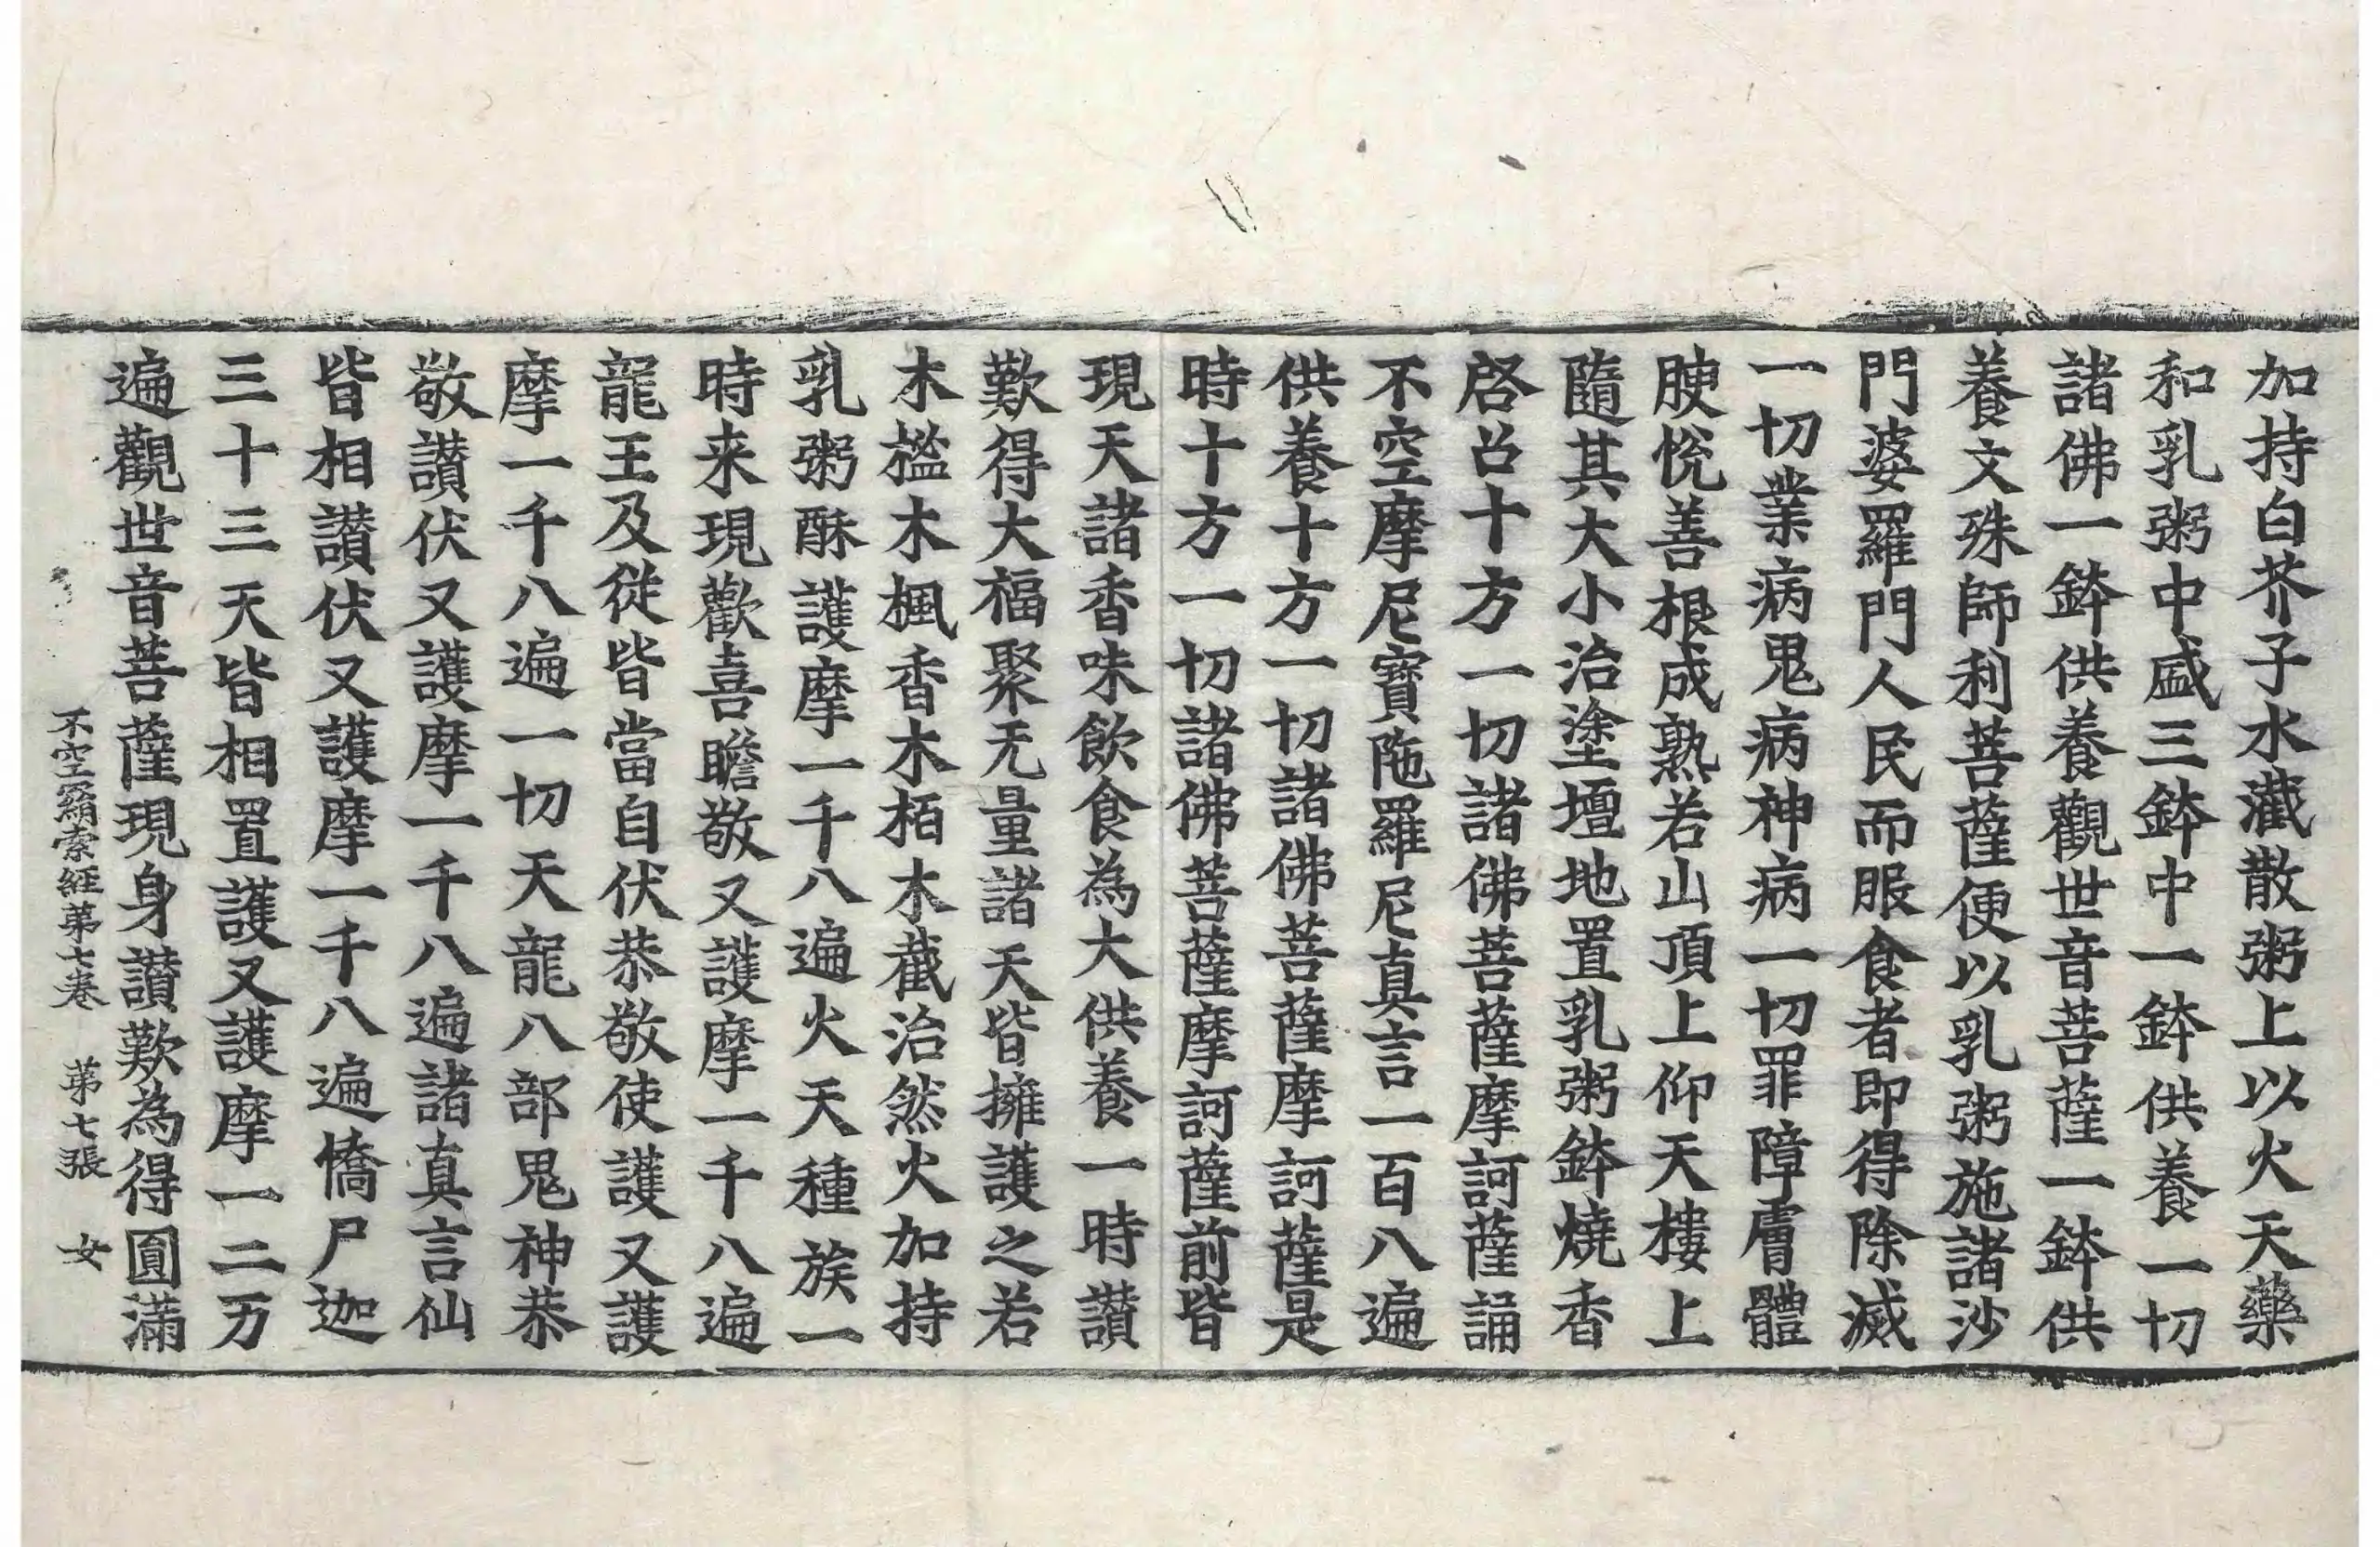 加持白芥子水㵴散粥上以火天藥
和乳粥中盛三鉢中一鉢供養一切
諸佛一鉢供養觀世音菩薩一鉢供
養文殊師利菩薩便以乳粥施諸沙
門婆羅門人民而服食者即得除滅
一切業病鬼病神病一切罪障膚體
腴悅善根成熟若山頂上仰天樓上
隨其大小治塗壇地置乳粥鉢燒香
啓召十方一切諸佛菩薩摩訶薩誦
不空摩尼寶陁羅尼真言一百八遍
供養十方一切諸佛菩薩摩訶薩是
時十方一切諸佛菩薩摩訶薩前皆
現天諸香味飲食為大供養一時讃
歎得大福聚无量諸天皆擁護之若
木檻木楓香木栢木截治然火加持
乳粥酥護摩一千八遍火天種族一
時来現歡喜瞻敬又護摩一千八遍
龍王及從皆當自伏恭敬使護又護
摩一千八遍一切天龍八部鬼神恭
敬讃伏又護摩一千八遍諸真言仙
皆相讃伏又護摩一千八遍憍尸迦
三十三天皆相置護又護摩一二万
遍觀世音菩薩現身讃歎為得圓滿
不空羂索經第七卷　第七張　女